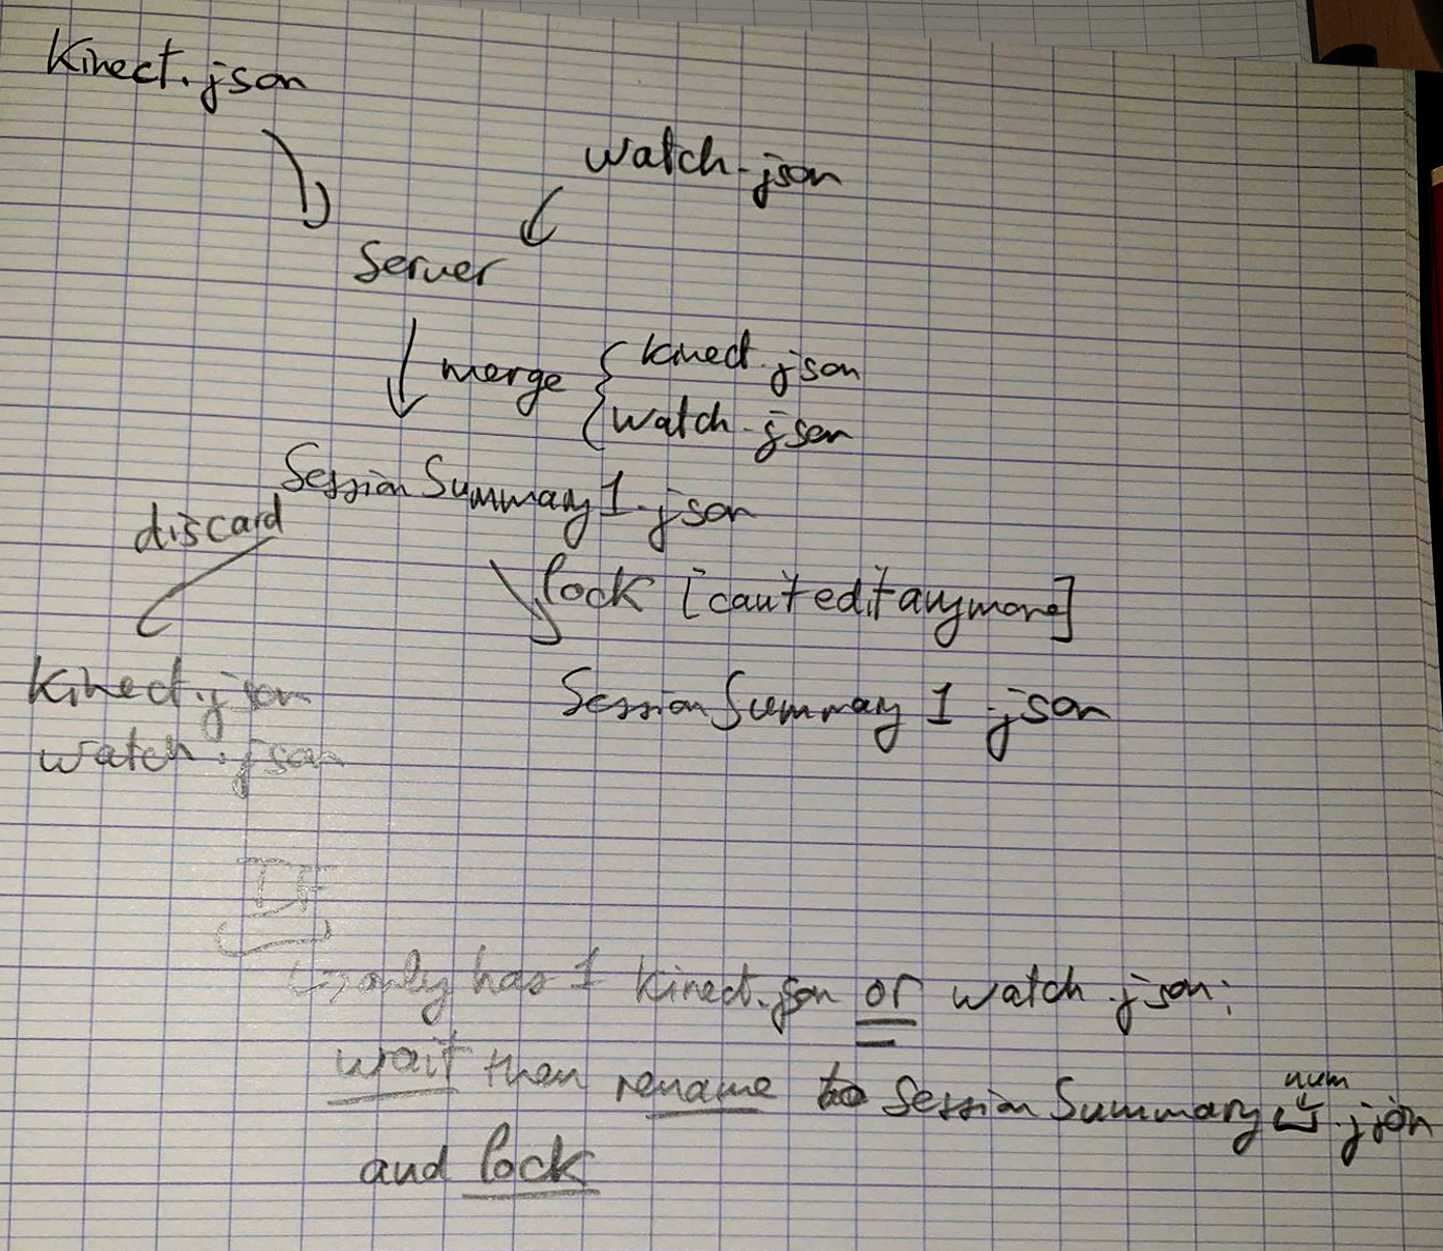 Kinect.json
watch.json
Server
merge { kinect.json
watch.json
SessionSummary1.json
discard
lock [can't edit anymore]
Kinect.json
watch.json
SessionSummary1.json
IF
↳ only has 1 kinect.json or watch.json:
wait then rename to SessionSummary num .json
and lock